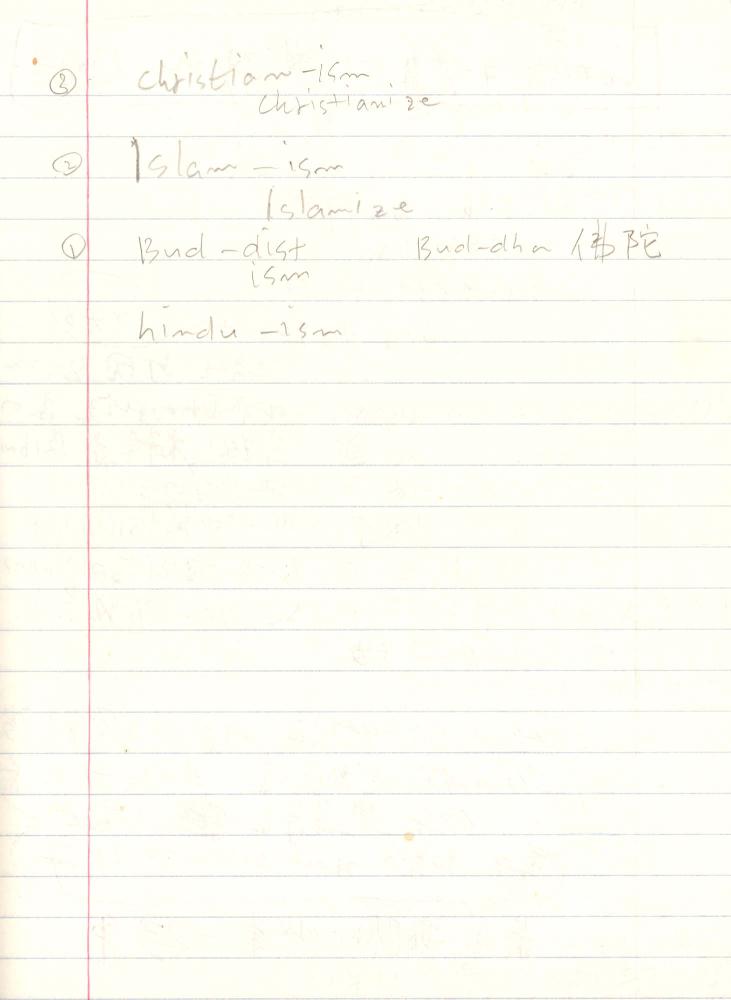 ③ christian-ism
christianize
② Islam-ism
Islamize
① Bud-dist Bud-dha 佛陀
ism
hindu-ism